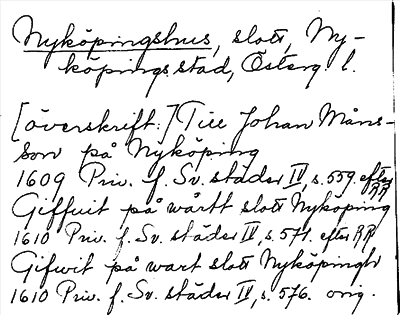 Nyköpingshus, slott, Ny-
köpings stad, Österg. l.
[överskrift:] Till Johan Måns-
son på Nyköping
1609 Priv. f. Sv. städer IV, s. 559 efter RR
Giffuit på wårtt slott Nyköping
1610 Priv. f. Sv. städer IV, s. 571. efter RR
Gifwit på wart slott Nyköpingh
1610 Priv. f. Sv. städer IV, s. 576. orig.